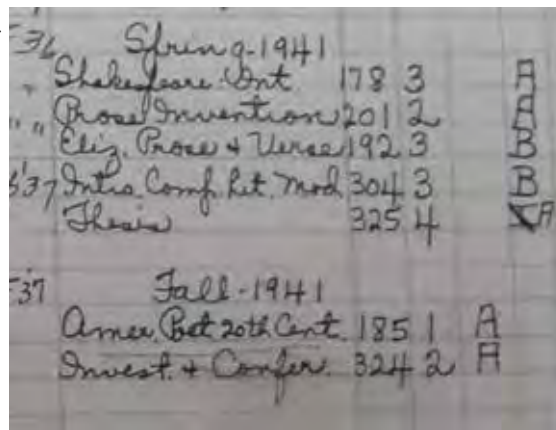 Spring-1941
Shakespeare Int 178 3 A
Prose Invention 201 2 A
Eliz. Prose + Verse 192 3 B
Intro. Comp. Lit. Mod 304 3 B
Thesis 325 4 A
Fall-1941
Amer. Poet 20th Cent. 185 1 A
Invest. + Confer. 324 2 A